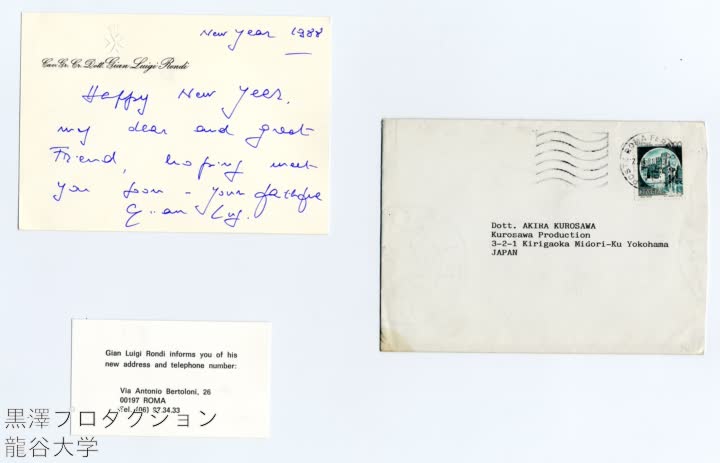 New Year 1988
Cav. Gr. Cr. Dott. Gian Luigi Rondi
Happy New Year,
my dear and great
Friend, hoping meet
you soon - your
Gian Luigi
ROMA
Dott. AKIRA KUROSAWA
Kurosawa Production
3-2-1 Kirigaoka Midori-Ku Yokohama
JAPAN
Gian Luigi Rondi informs you of his
new address and telephone number:
Via Antonio Bertoloni, 26
00197 ROMA
Tel. (06) 87.34.33
黒澤プロダクション
龍谷大学